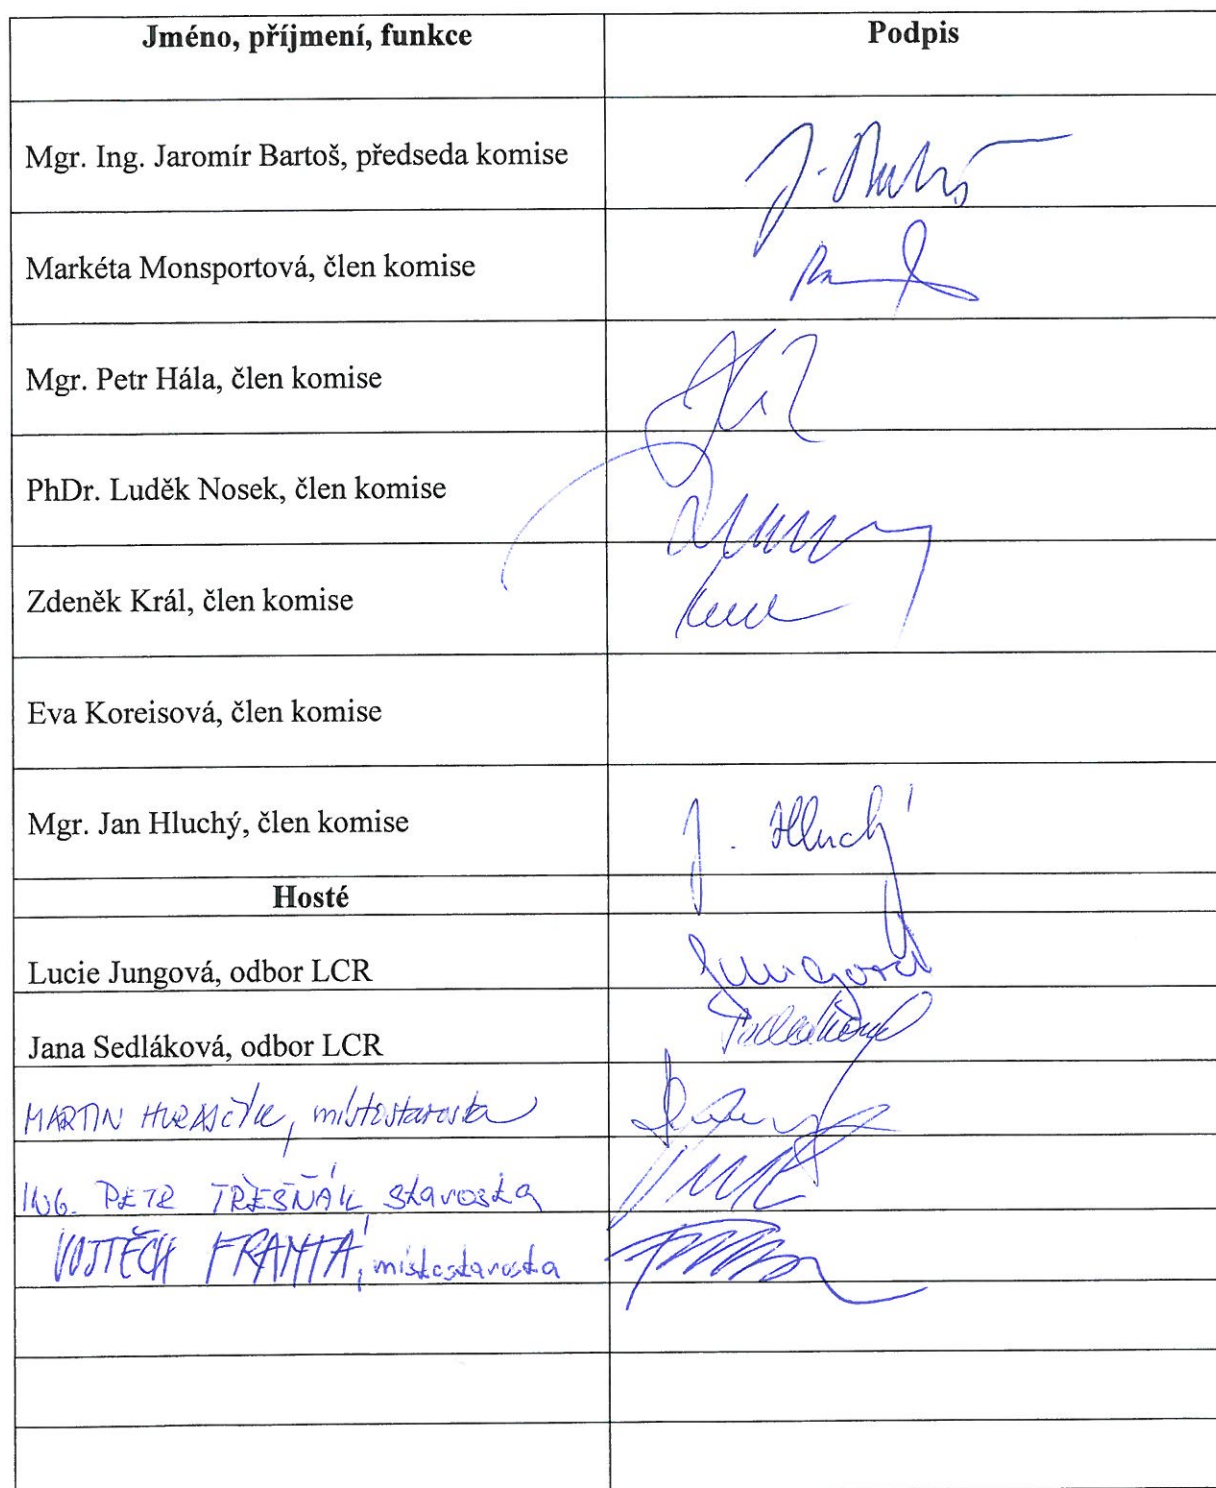 Jméno, příjmení, funkce Podpis
Mgr. Ing. Jaromír Bartoš, předseda komise
Markéta Monsportová, člen komise
Mgr. Petr Hála, člen komise
PhDr. Luděk Nosek, člen komise
Zdeněk Král, člen komise
Eva Koreisová, člen komise
Mgr. Jan Hluchý, člen komise J. Hluchý
Hosté
Lucie Jungová, odbor LCR Jungová
Jana Sedláková, odbor LCR Sedláková
MARTIN místostarosta
ING. PETR TŘEŠŇÁK starosta
VOJTĚCH FRANTA, místostarosta